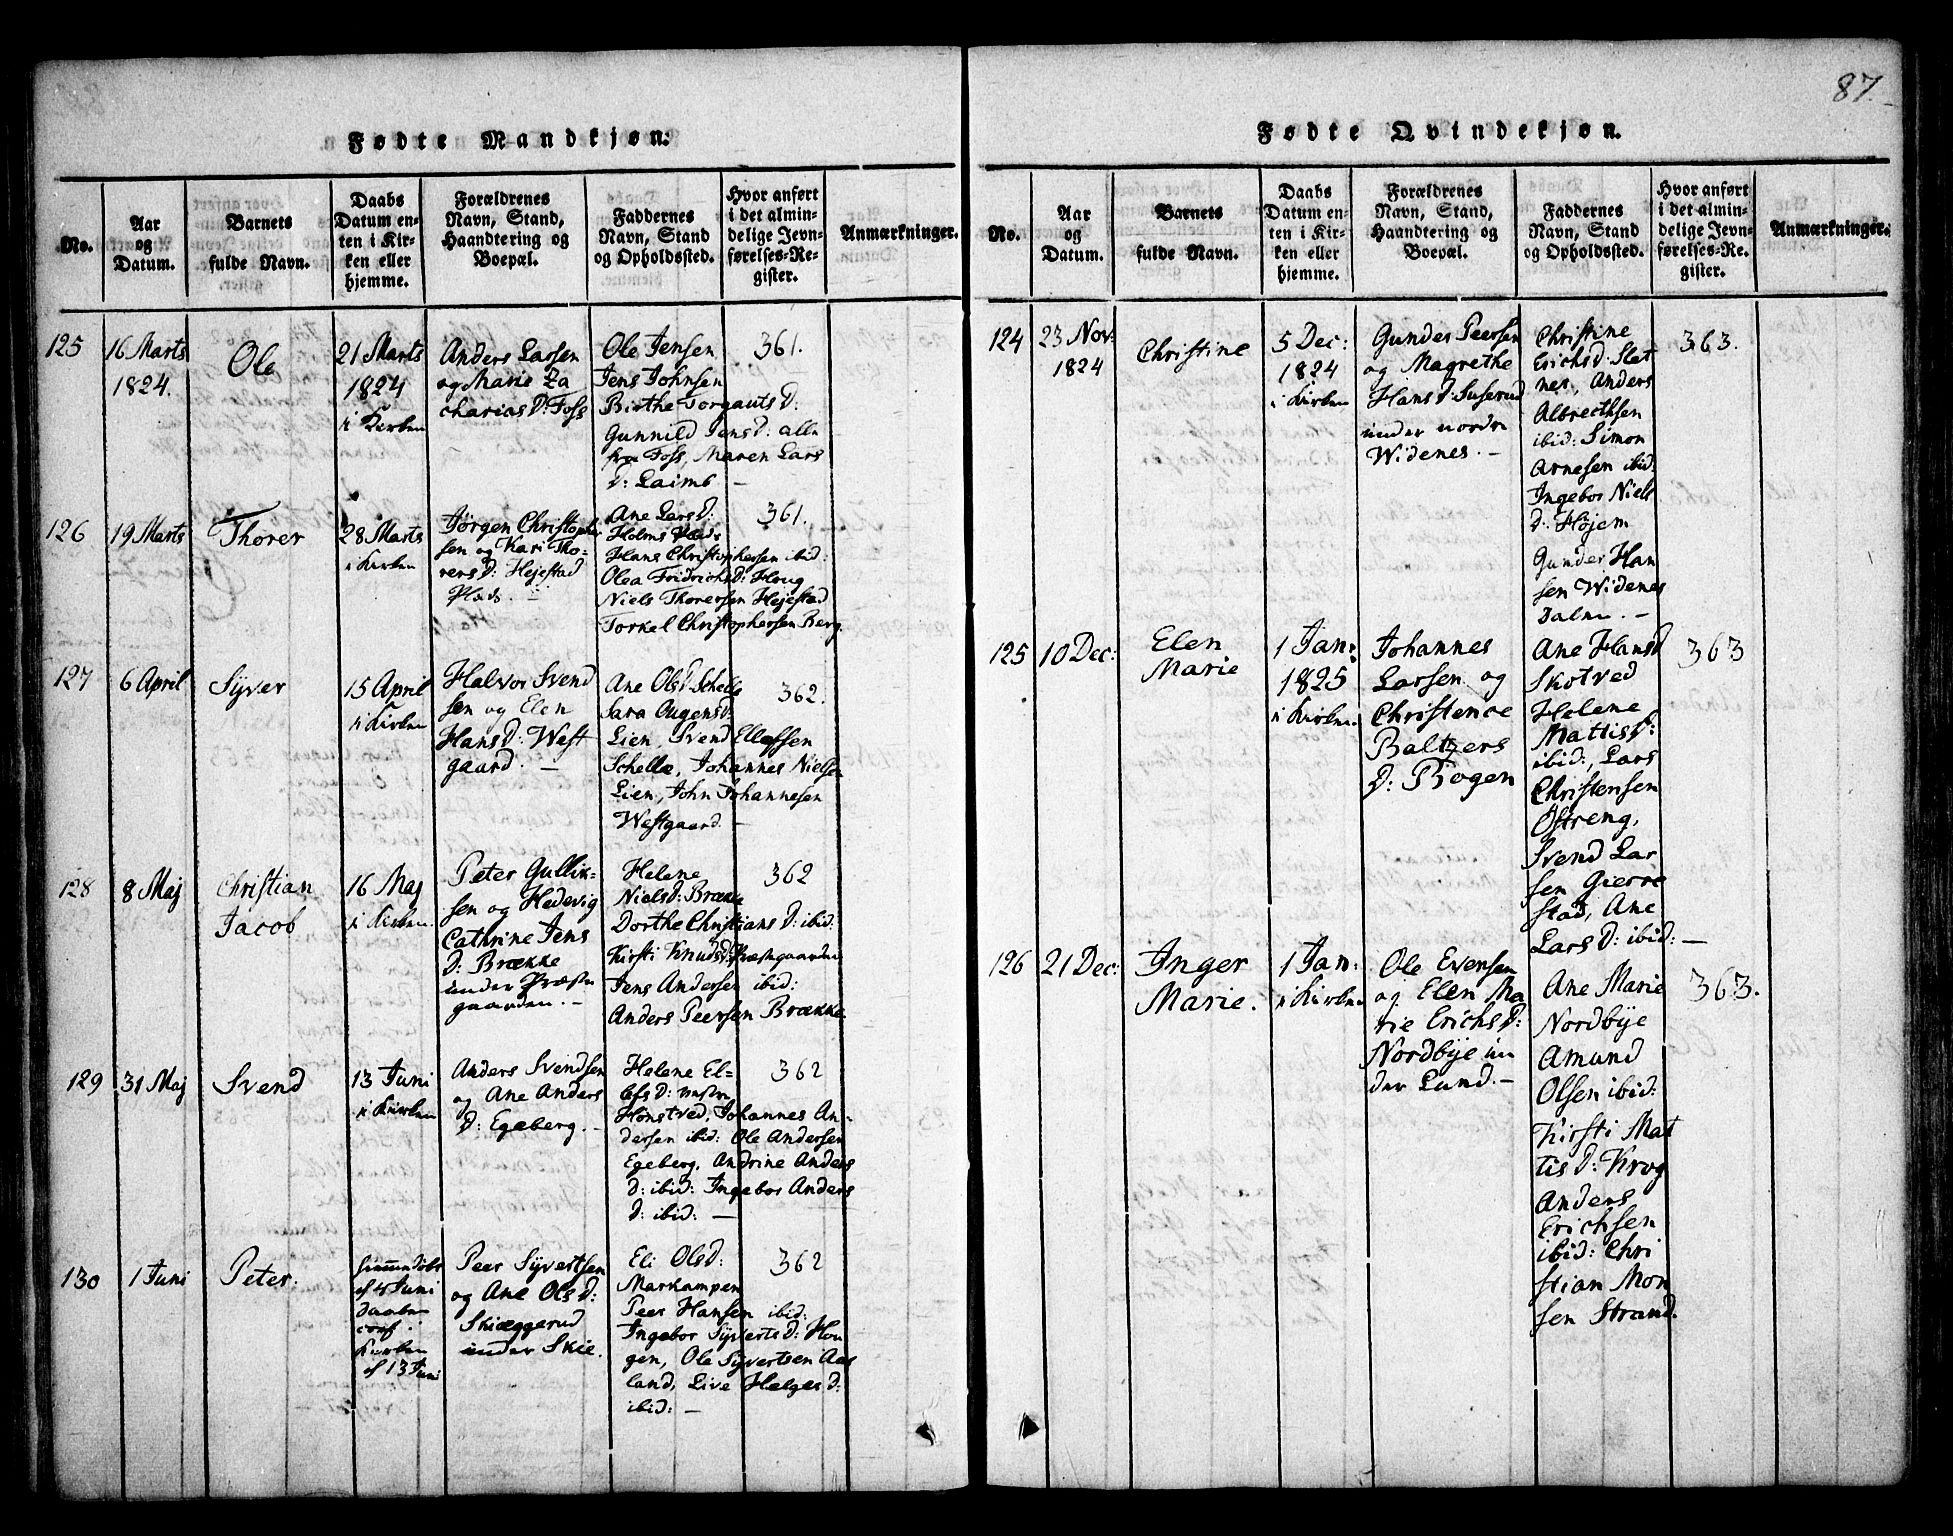 87.
Fødte Mandkjøn.
No.
Aar
og
Datum.
Barnets
fulde Navn.
Daabs
Datum en-
ten i Kir-
ken eller
hjemme.
Forældrenes
Navn, Stand,
Haandtering og
Boepæl.
Faddernes
Navn, Stand
og Opholdssted.
Hvor anført
i det almin-
delige Jevn-
førelses-Re-
gister.
Anmærkninger.
125
16 Marts
1824.
Ole
21 Marts
1824
i Kirken
Anders Larsen
og Marie Za
charias D: Foss
Ole Jensen
Jens Johnsen
Birthe Torgauts D:
Gunnild Jens D: alle
fra Foss, Maren Lars
D: Laimb —
361.
126
19 Marts
Thorer
28 Marts
i Kirken
Jørgen Christophe
sen og Kari Tho-
rers D: Hejestad
Plads. —
Ane Lars D:
Holms Plads
Hans Christophersen ibid:
Olea Fridrichs D: Houg
Niels Thorersen Hejestad
Torkel Christophersen Berg.
361.
127
6 April
Syver
15 April
i Kirken
Halvor Svend
sen og Elen
Hans D: West
gaard. —
Ane Ols D: Schelle
Sara Ougens D:
Lien, Svend Ellefsen
Schelle, Johannes Nielsen
Lien, John Johannesen
Westgaard. —
362.
128
8 Maj
Christian
Jacob
16 Maj
i Kirken
Peter Gullik-
sen og Hedevig
Cathrine Jens
D: Brække
under Præste
gaarden. —
Helene
Niels D: Brække
Dorthe Christians D: ibid:
Kirsti Knuds D: Præstegaarden
Jens Andersen ibid:
Anders Peersen Brække
362
129
31 Maj
Svend
13 Juni
i Kirken
Anders Svendsen
og Ane Anders
D: Egeberg. —
Helene El-
lefs D:
Honstved, Johannes An-
dersen ibid: Ole Andersen
Egeberg, Andrine Anders
D: ibid: Ingebor Anders
D: ibid: —
362
130
1 Juni
Peter.
hiemmedøbt
d 4 Juni
Daaben
conf:
Kirken
d 13 Juni
Peer Syvertsen
og Ane Ols D:
Skiæggerud
under Skie.
Eli Ols D:
Markampen
Peer Hansen ibid:
Ingebor Syverts D: Hou
gen, Ole Syvertsen Aas
land, Live Helges D:
ibid: —
362
Fødte Qvindekjøn.
No.
Aar
og
Datum.
Barnets
fulde Navn.
Daabs
Datum en-
ten i Kir-
ken eller
hjemme.
Forældrenes
Navn, Stand,
Haandtering og
Boepæl.
Faddernes
Navn, Stand
og Opholdssted.
Hvor anført
i det almin-
delige Jevn-
førelses-Re-
gister.
Anmærkninger.
124
23 Nov:
1824
Christine
5 Dec:
1824
i Kirken
Gunder Peersen
og Magrethe
Hans D: Suserud
under nordre
Widenes. —
Christine
Erichs D: Slet
nes, Anders
Albrecthsen
ibid: Simon
Arnesen ibid:
Ingebor Niels
D: Højem
Gunder Han
sen Widenes
Dalen. —
363.
125
10 Dec:
Elen
Marie
1 Jan:
1825
i Kirken.
Johannes
Larsen og
Christence
Baltzers
D: Bogen
Ane Hans D
Skotved
Helene
Mattis D:
ibid:, Lars
Christensen
Østreng,
Svend Lar
sen Gierre
stad, Ane
Lars D: ibid: —
363
126
21 Dec:
Inger
Marie.
1 Jan:
i Kirken
Ole Evensen
og Elen Ma
rie Erichs D:
Nordbye un
der Lund. —
Ane Marie
Nordbye
Amund
Olsen ibid:
Kirsti Mat
tis D: Krog
Anders
Erichsen
ibid: Chri
stian Mon
sen Strand.
363.